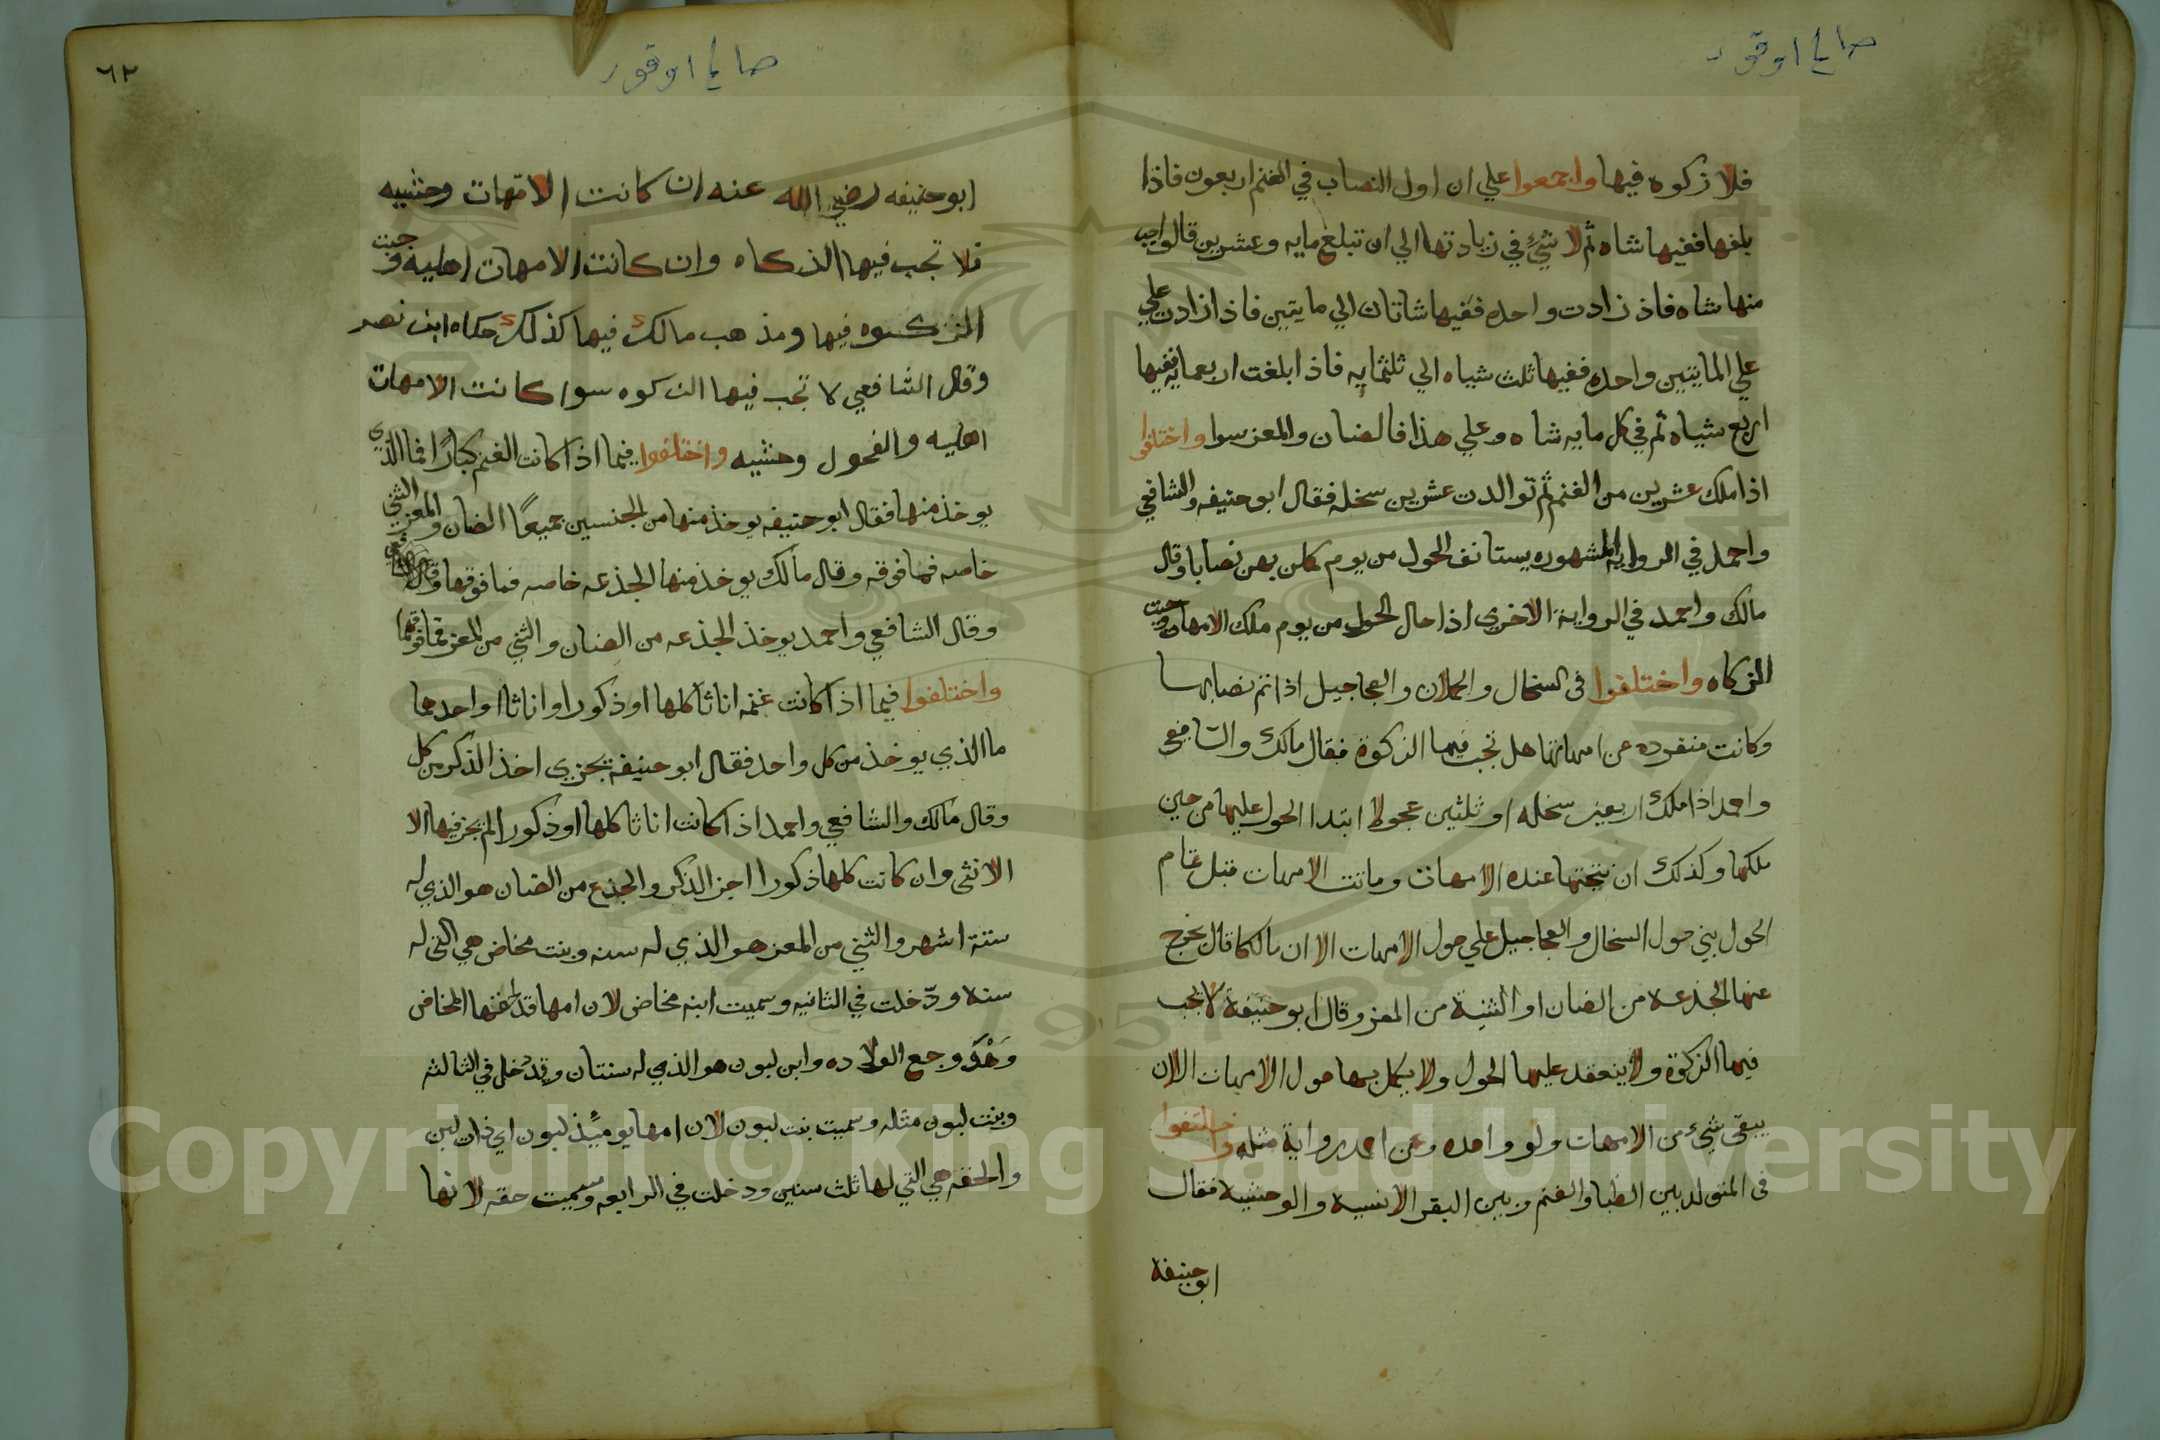 صالح اوقور
فلا زكوه فيها واجمعوا علي ان اول النصاب في الغنم اربعون فاذا
بلغها ففيها شاه ثم لا شئ في زيادتها الي ان تبلغ مايه وعشرين قالواجب
منها شاه فاذ زادت واحده ففيها شاتان الي مايتين فاذا زادت علي
علي المايتين واحده ففيها ثلث شياه الي ثلثمايه فاذا بلغت اربعمايه ففيها
اربع شياه ثم في كل مايه شاه وعلي هذا فالضان والمعز سوا واختلفوا
اذا ملك عشرين من الغنم ثم توالدت عشرين سخله فقال ابو حنيفه والشافعي
واحمد في الروايه المشهوره يستانف الحول من يوم كملن بهن نصابا وقال
مالك واحمد في الرواية الاخري اذا حال الحول من يوم ملك الامهات وجبت
الزكاه واختلفوا في السخال والحملان والعجاجيل اذا تم نصابها
وكانت منفرده عن امهاتها هل تجب فيها الزكوة فقال مالك والشافعي
واحمد اذا ملك اربعين سخله او ثلثين عجولا ابتدا الحول عليها من حين
ملكها وكذلك ان نتجتها عنده الامهات وماتت الامهات قبل تمام
الحول بني حول السخال والعجاجيل علي حول الامهات الا ان مالكا قال يخرج
عنها الجذعة من الضان او الثنية من المعز وقال ابو حنيفة لا تجب
فيها الزكوة ولا ينعقد عليها الحول ولا يكمل بها حول الامهات الا ان
يبقي شئ من الامهات ولو واحده وعن احمد رواية مثله واختلفوا
في المتولد بين الظبا والغنم وبين البقر الانسيه والوحشيه فقال
ابو حنيفة
٦٢
صالح اوقور
ابو حنيفه رضي الله عنه ان كانت الامهات وحشيه
فلا تجب فيها الذكاه وان كانت الامهات اهليه وجبت
الزكوه فيها ومذهب مالك فيها كذلك حكاه ابن نصر
وقال الشافعي لا تجب فيها الزكوه سوا كانت الامهات
اهليه والفحول وحشيه واختلفوا فيما اذا كانت الغنم كبارا فما الذي
يوخذ منها فقال ابو حنيفه يوخذ منها من الجنسين جميعا الضان والمعز الثني
خاصه فما فوقه وقال مالك يوخذ منها الجذعه خاصه فما فوقها
وقال الشافعي واحمد يوخذ الجذعه من الضان والثني من المعز فما فوقهما
واختلفوا فيما اذا كانت غنمه اناثا كلها او ذكورا او اناثا او احدهما
ما الذي يوخذ من كل واحد فقال ابو حنيفه يجزي اخذ الذكر من كل
وقال مالك والشافعي واحمد اذا كانت اناثا كلها او ذكورا لم يجز فيها الا
الانثي وان كانت كلها ذكورا اجز الذكر والجذع من الضان هو الذي له
ستة اشهر والثني من المعز هو الذي له سنه وبنت مخاض هي التي له
سنة ودخلت في الثانيه وسميت ابنه مخاض لان امها قد اخذها المخاض
وهو وجع الولاده وابن لبون هو الذي له سنتان وقد دخل في الثالثه
وبنت لبون مثله وسميت بنت لبون لان امها يوميئذ لبون اي ذات لبن
والحقه هي التي لها ثلث سنين ودخلت في الرابعه وسميت حقه لانها
Copyright © King Saud University